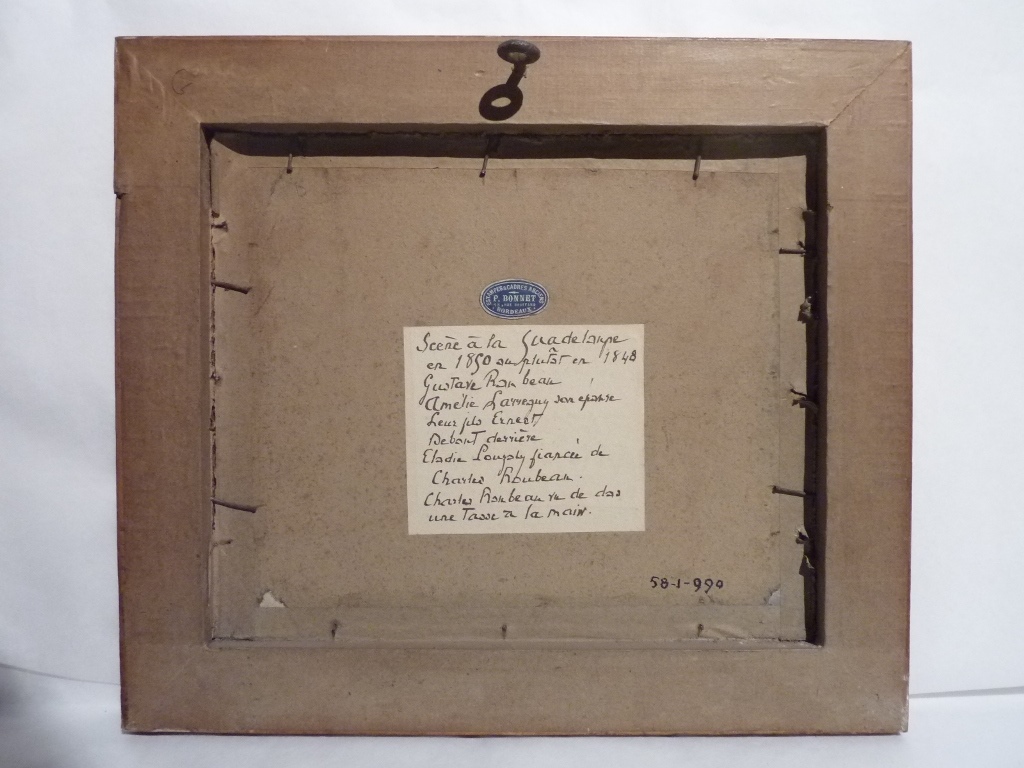 ESTAMPES & CADRES ANCIENS
P. BONNET
BORDEAUX
Scène à la Guadeloupe
en 1850 ou plutôt en 1848
Gustave Roubeau
Amélie Larreguy son épouse
Leur fils Ernest
Debout derrière
Elodie fiancée de
Charles Roubeau.
Charles Roubeau vu de dos
une Tasse à la main.
58-1-990